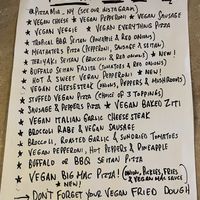 @Pizza Mia_NY (see our instagram)
★ Vegan Cheese ★ Vegan Pepperoni ★ Vegan Sausage
★ Vegan Veggie ★ Vegan Everything Pizza
★ Tropical BBQ Seitan (Pineapple & Red Onions)
★ Meateaters Pizza (Pepperoni, Sausage & Seitan)
★ Teriyaki Seitan (Broccoli & Red Onions) ★ New!
★ Buffalo Seitan Fajita (Tomatoes & Red Onions)
★ Hot & Sweet Vegan Pepperoni ★ New!
★ Vegan Cheesesteak (Onions, Peppers & Mushrooms)
★ Stuffed Vegan Pizza (Choice of 3 Toppings)
★ Sausage & Peppers Pizza ★ Vegan Baked Ziti
★ Vegan Italian Garlic Cheese Steak
★ Broccoli Rabe & Vegan Sausage
★ Broccoli, Roasted Garlic & Sundried Tomatoes
★ Vegan Pepperoni, Hot Peppers & Pineapple
★ Buffalo or BBQ Seitan Pizza
★ Vegan Big Mac Pizza! (Onion, Pickles, Fries & Vegan Mac Sauce)
★ New!
→ Don't Forget Your Vegan Fried Dough